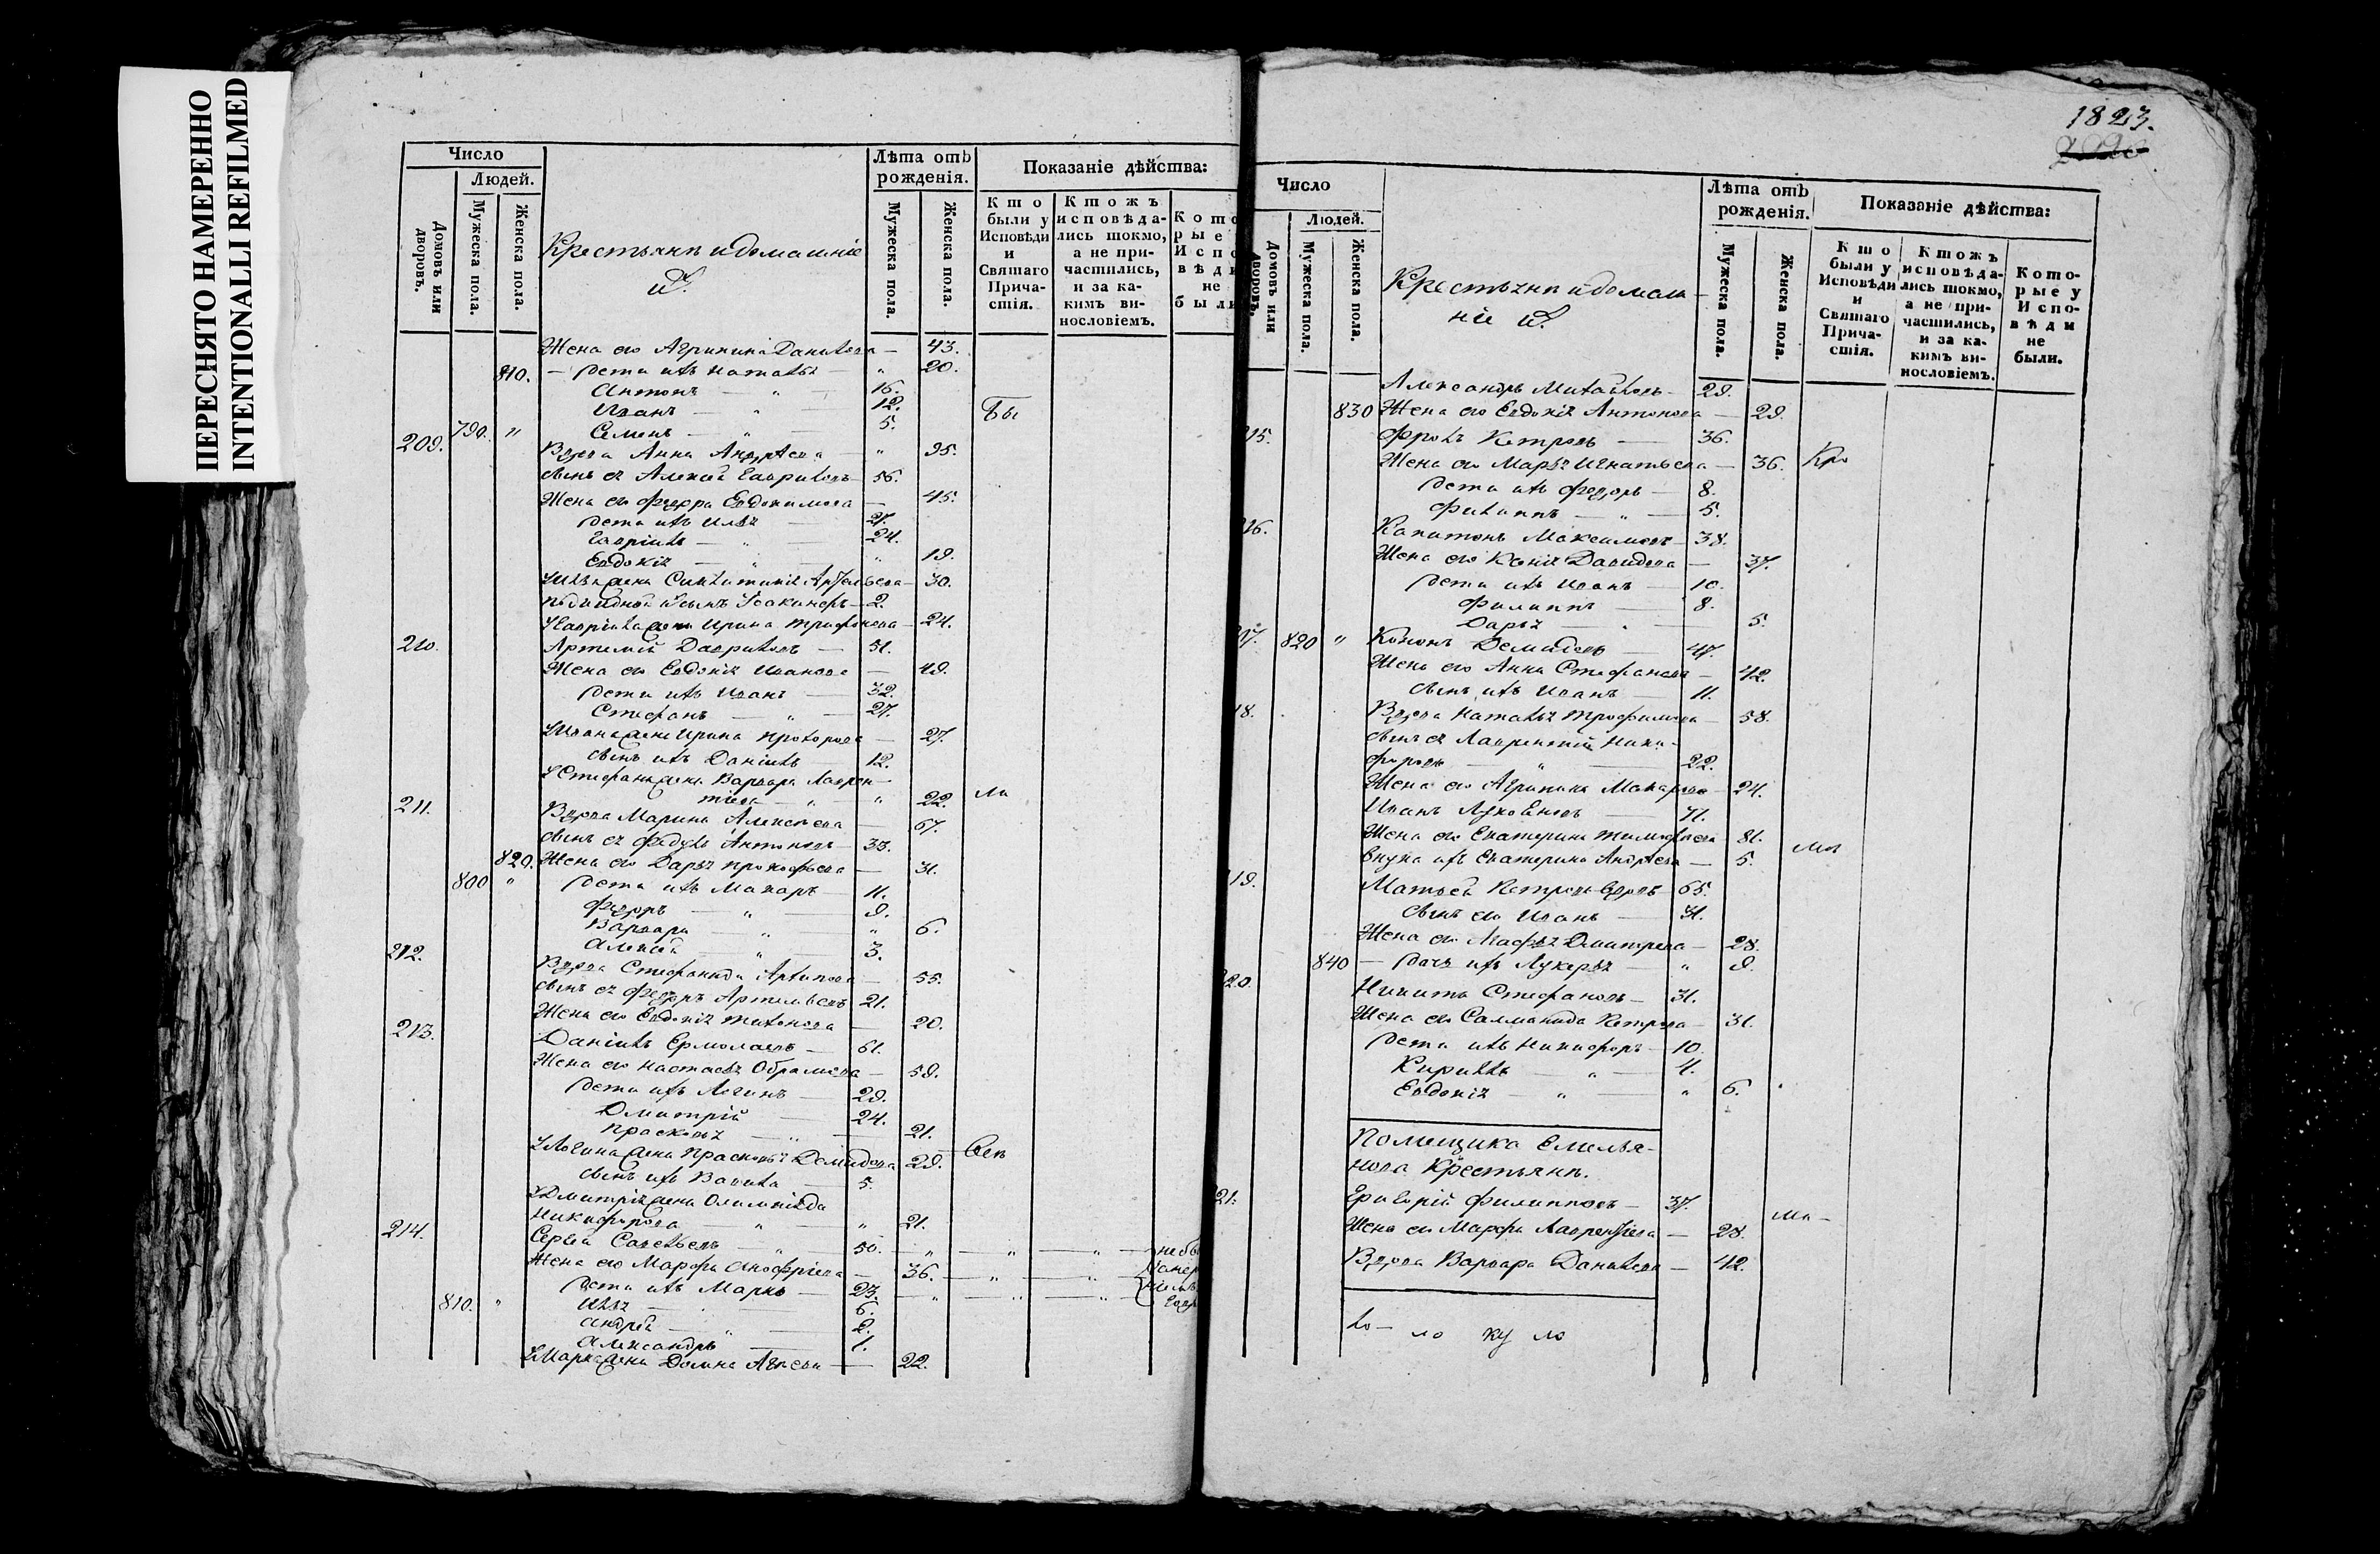 ПЕРЕСНЯТО НАМЕРЕННО
INTENTIONALLI REFILMED
Число
Людей.
Домовъ или дворовъ.
Мужеска пола.
Женска пола.
Крестьянѣ и домашніе
ихъ.
Лѣта отъ рожденія.
Мужеска пола.
Женска пола.
Показаніе дѣйства:
Кто были у Исповѣди и Святаго Причастія.
Ктожъ исповѣдались токмо, а не причастились, и за какимъ винословіемъ.
Кото
рые
Испо
вѣди
не
были
Жена его Агрипина Данилова — 43.
810. — Дети ихъ Наталья — " 20.
Антонъ — " — 16.
Иванъ — " — 12. Бы
Семенъ — " — 5.
209. 790. " Вдова Анна Андрѣева — " 95.
сынъ ея Алексей Гавриловъ — 56.
Жена его Федора Евдокимова — 45.
Дети ихъ Илья — 27.
Гавріилъ — " — 24.
Евдокія — " — " 19.
30.
2.
Ирина Трифонова — 24.
210. Артемій Гавриловъ — 51.
Жена его Евдокія Иванова — 49.
Дети ихъ Иванъ — 32.
Стефанъ — " — 27.
У Ивана жена Ирина Прохорова — 27.
сынъ ихъ Даніилъ — 12.
У Стефана жена Варвара Лаврен-
тіева — " — " 22. ли
211. Вдова Марина Алексѣева — 67.
сынъ ея Федулъ Антоновъ — 33.
820. Жена его Дарья Прокофьева — 31.
800 " Дети ихъ Макаръ — 11.
Федоръ — " — 9.
Варвара — " — " 6.
Алексей — " — 3.
212. Вдова Стефанида Архипова — 55.
сынъ ея Федоръ Артемьевъ 21.
Жена его Евдокія Тихонова — 20.
213. Даніилъ Ермолаевъ — 61.
Жена его Настасья Обрамова — 59.
Дети ихъ Логинъ — 29.
Дмитрій — 24.
Прасковья — " — 21.
У Логина жена Прасковья Демидова 29. — Свя
сынъ ихъ Вавила — 5.
У Дмитрія жена Олимпіада
Никифорова — " — " 21.
214. Сергей Савельевъ — " — 50. — " — " — " — не бы
Жена его Марфа Анофріева — 36. — " — "
Дети ихъ Марко — 23. — " — " — "
810. " Илья — 6.
Андрей — " — 2.
Александръ — 1.
У Марка жена Домна Агѣева — 22.
1823.
Число
Людей.
Домовъ или дворовъ.
Мужеска пола.
Женска пола.
Крестьянѣ и домаш-
ніе ихъ.
Лѣта отъ рожденія.
Мужеска пола.
Женска пола.
Показаніе дѣйства:
Кто были у Исповѣди и Святаго Причастія.
Ктожъ исповѣдались токмо, а не причастились, и за какимъ винословіемъ.
Которые у Исповѣди не были.
Александръ Михайловъ — 29.
830 Жена его Евдокія Антонова — 29.
15. Фролъ Петровъ — 36.
Жена его Марья Игнатьева — 36. Кро
Дети ихъ Федоръ — 8.
Филиппъ — " — 5.
16. Капитонъ Максимовъ — 38.
Жена его Ксенія Давидова — 37.
Дети ихъ Иванъ — 10.
Филиппъ — 8.
Дарья — 5.
17. 820 " Кононъ Демидовъ — 47.
Жена его Анна Стефанова — 42.
сынъ ихъ Иванъ — 11.
18. Вдова Наталья Трофимова — 58.
сынъ ея Лаврентій Ники-
форовъ — " — 22.
Жена его Агрипина Макарова — 24.
Иванъ 71.
Жена его Екатерина Тимофеева 81.
внука ихъ Екатерина Андрѣева — 5.
19. Матвей Петровъ вдовъ — 65.
сынъ его Иванъ — 31.
Жена его Агафья Дмитрева — 28.
840 — Дочь ихъ Лукерья — " 9.
220. Никита Стефановъ — 31.
Жена его Саламанида Петрова — 31.
Дети ихъ Никифоръ — 10.
Кириллъ — " — 4.
Евдокія — " — " 6.
Помещика Емелья-
нова Крестьянѣ.
21. Григорій Филипповъ — 37.
Жена его Марфа Лаврентьева — 28. ма-
Вдова Варвара Данилова — 42.